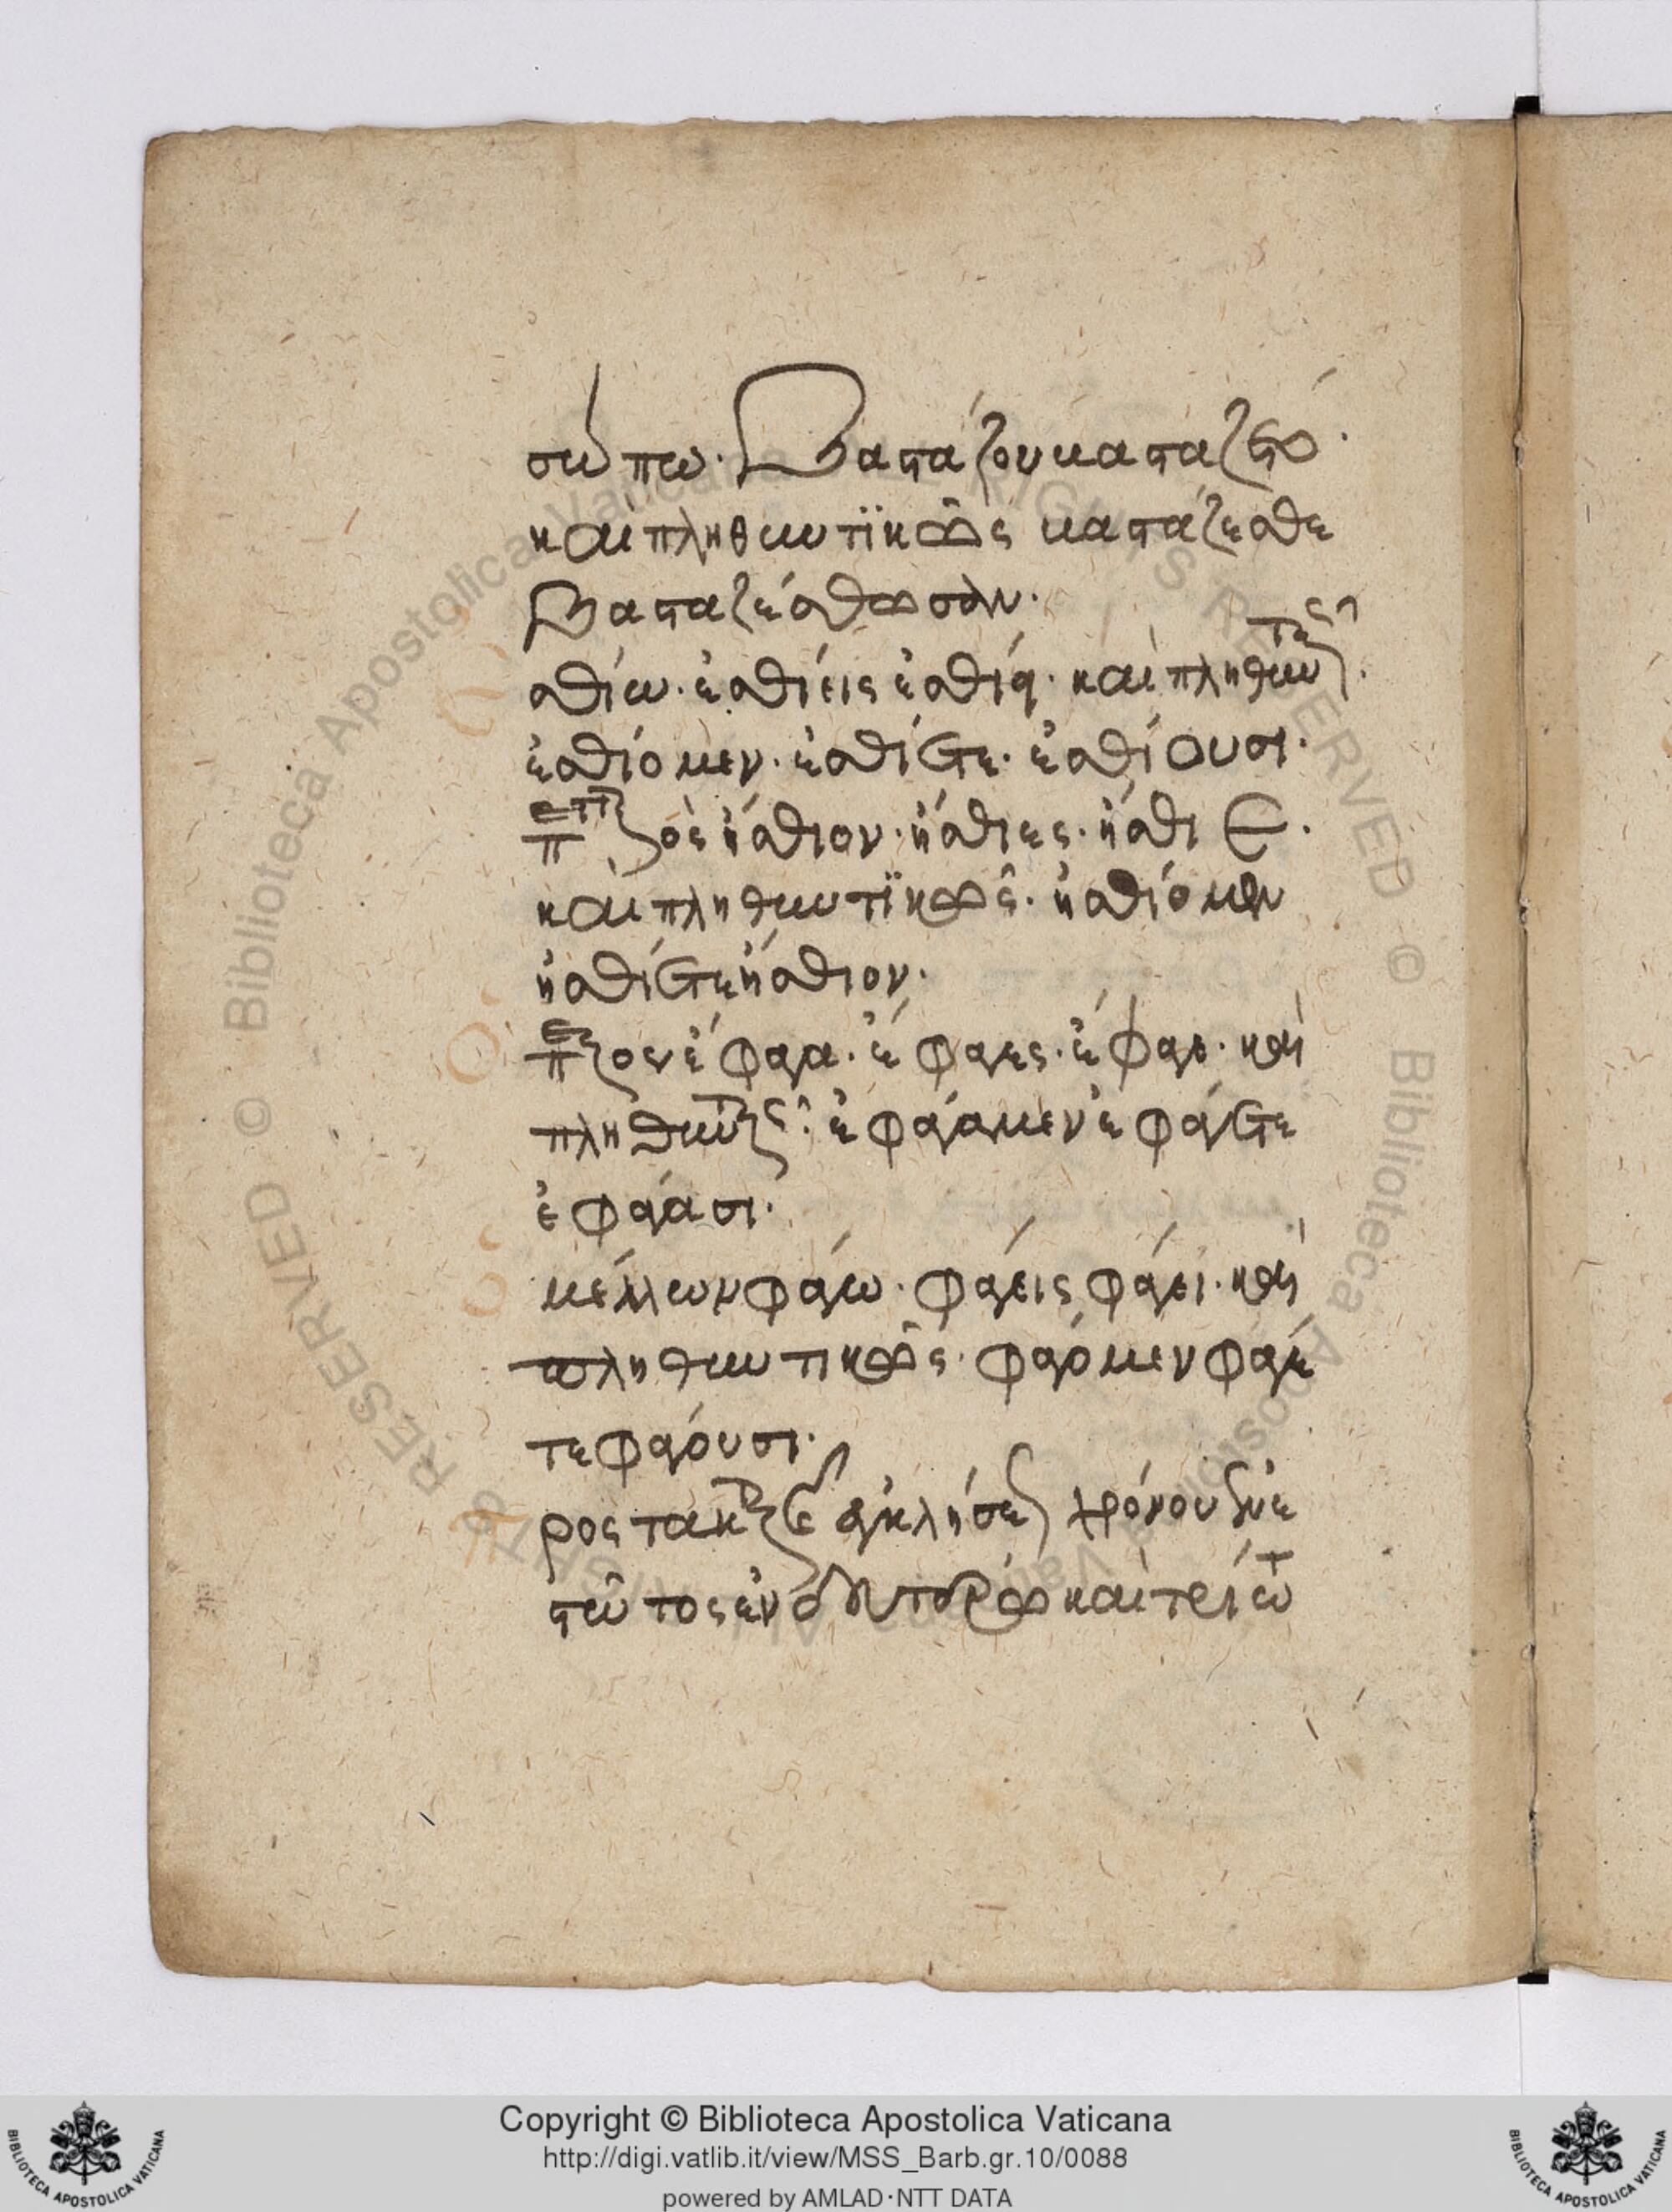 σώπω. κατάζου καταζέσθω.
καὶ πληθυντϊκῶς κατάζεσθε
καταζέσθωσαν.
σθίω. ἐσθίεις ἐσθίει. καὶ πληθυντς
ἐσθίομεν. ἐσθίετε. ἐσθίουσι.
ὃς ἤσθιον. ἤσθιες. ἤσθιε.
καὶ πληθυντϊκῶς. ἠσθίομεν
ἠσθίετε ἤσθιον.
ἔφαγα. ἔφαγες. ἔφαγε. καὶ
πληθυντ ἐφάγαμεν ἐφάγετε
ἐφάγασι.
μέλλων φάγω. φάγεις φάγει. καὶ
πληθυντικῶς. φάγομεν φάγε
τε φάγουσι.
ρος τακτ ἐγκλήσε χρόνου ἐνε
στῶτος ἐν δευτέρω καὶ τρίτω
Copyright © Biblioteca Apostolica Vaticana
http://digi.vatlib.it/view/MSS_Barb.gr.10/0088
powered by AMLAD·NTT DATA
BIBLIOTECA APOSTOLICA VATICANA
BIBLIOTECA APOSTOLICA VATICANA